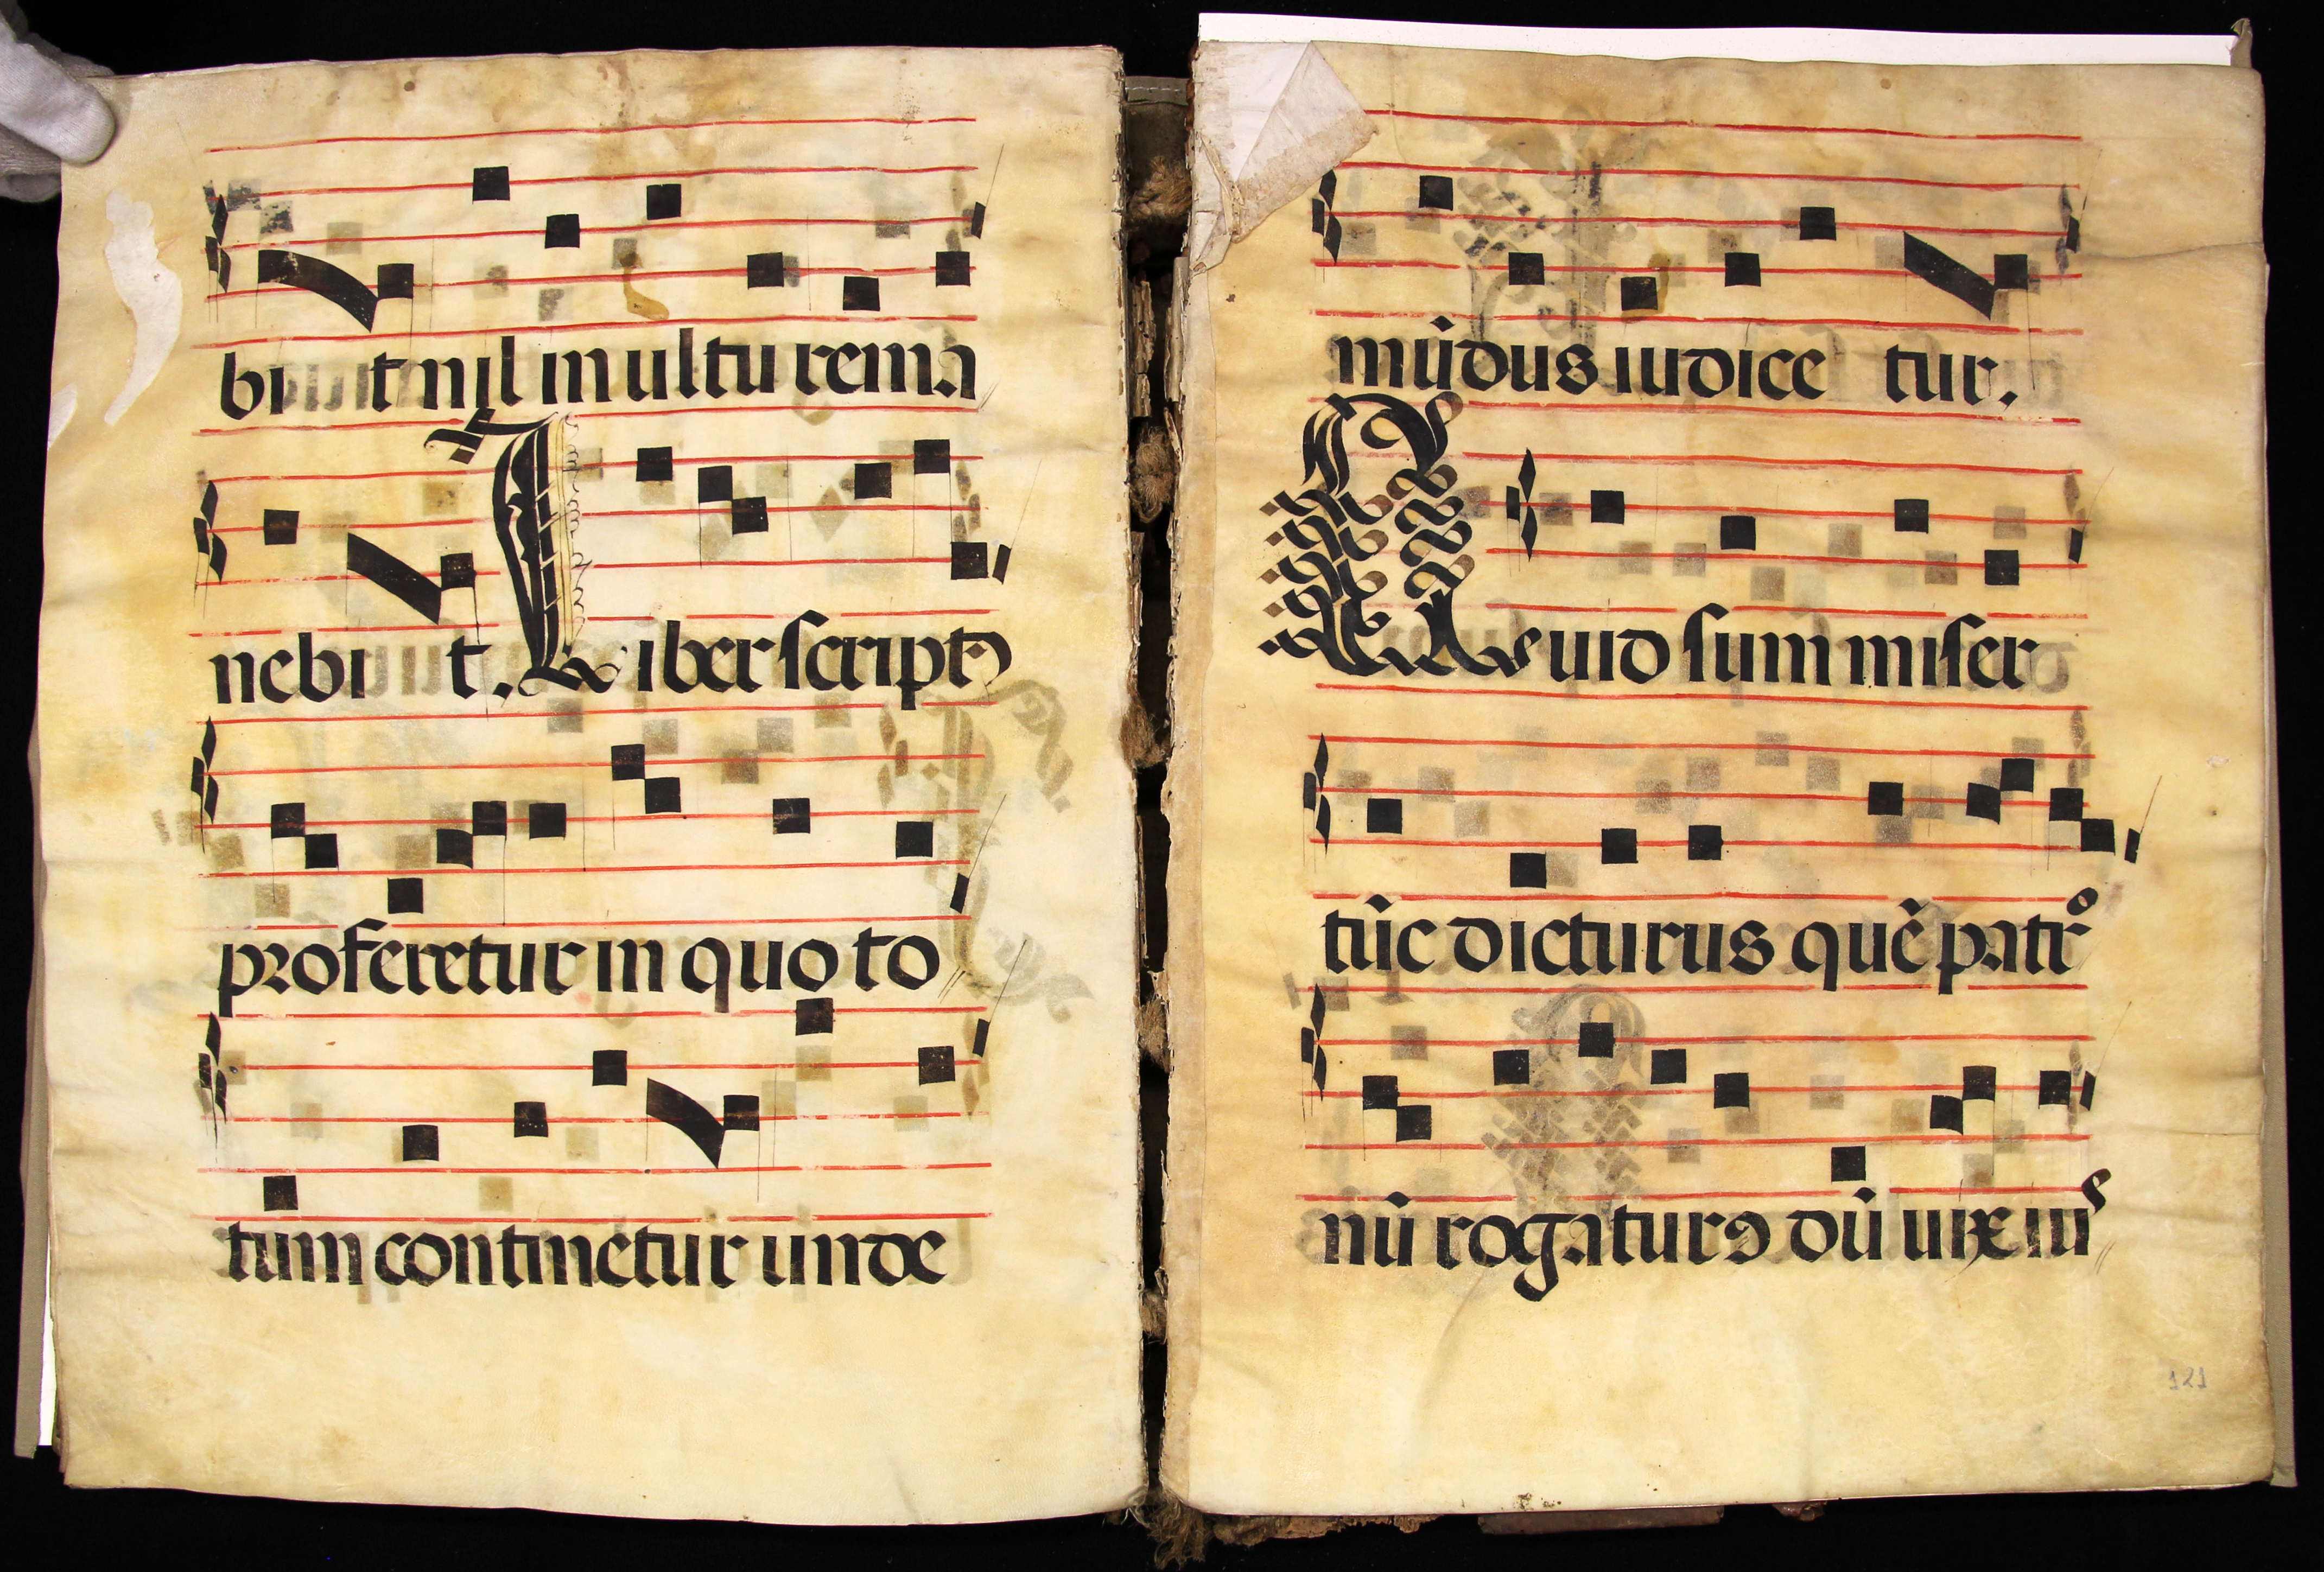 bit nil inultu rema
nebit. Liber script⁹
proferetur in quo to
tum continetur unde
mūdus iudice tur.
Quid sum miser
tūc dicturus quē patr°
nū rogatur⁹ dū uix iu
121